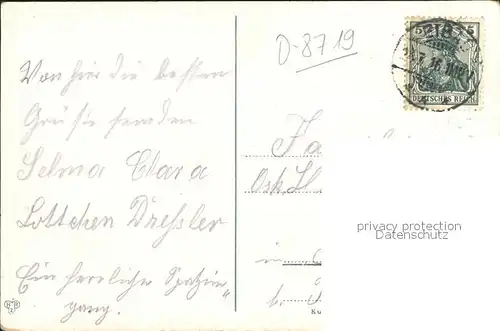 Von hier die besten
Grüße senden
Selma Clara
Lottchen Dressler
Ein herrlicher Spazier„
gang.
D-8719
5 5
DEUTSCHES REICH
Fa
Osk. H
in
b.
privacy protection
Datenschutz